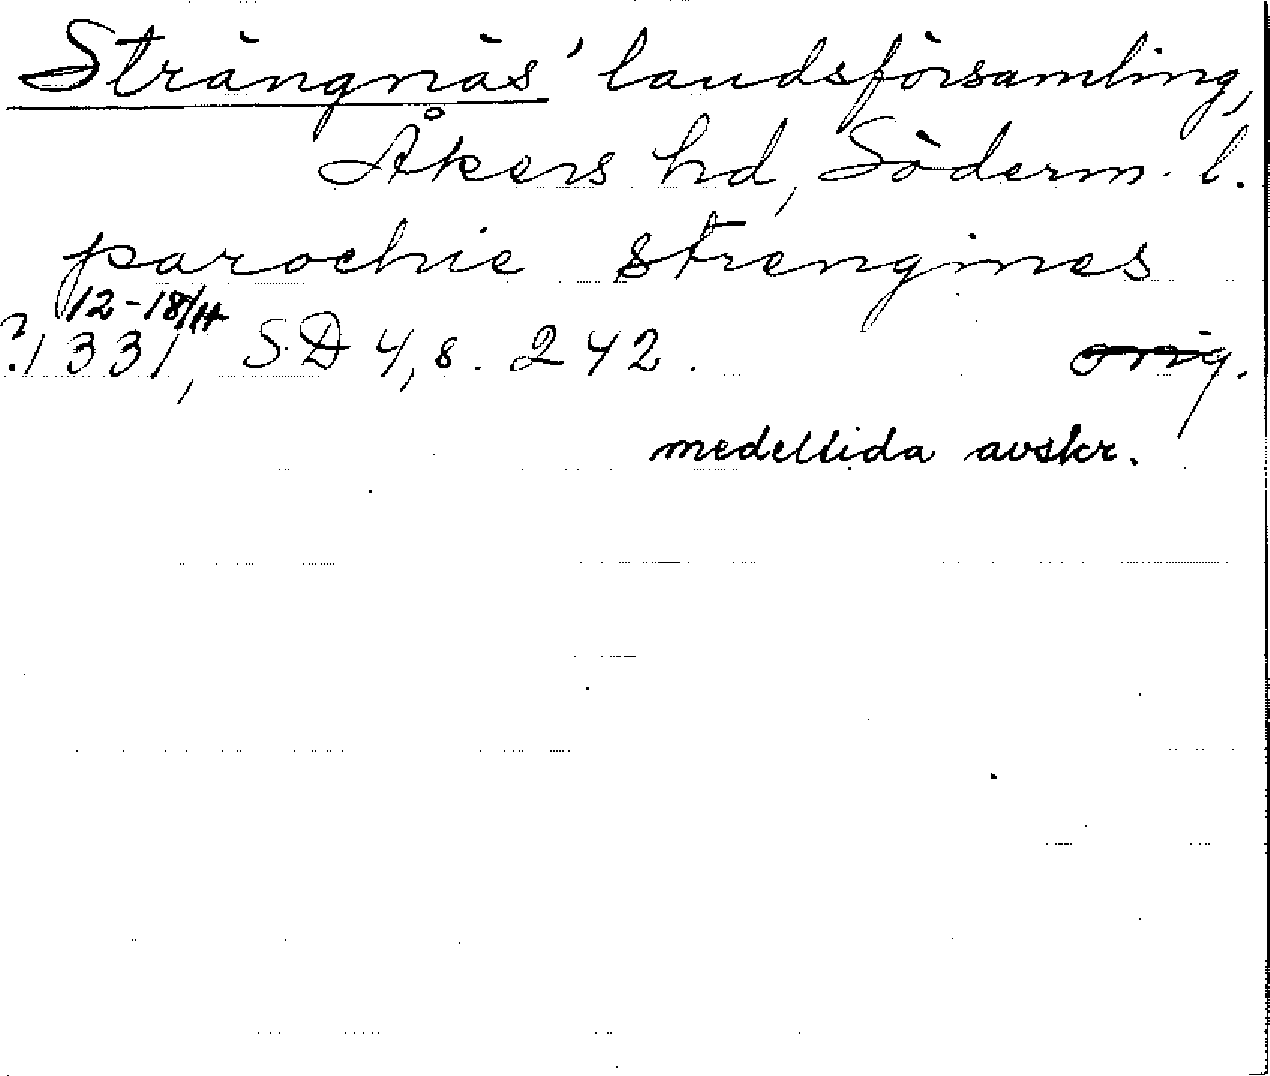 Strängnäs' landsförsamling,
Åkers hd, Söderm. l.
parochie strengines
12-18/4
?1331, SD 4, s. 242. orig.
medeltida avskr.